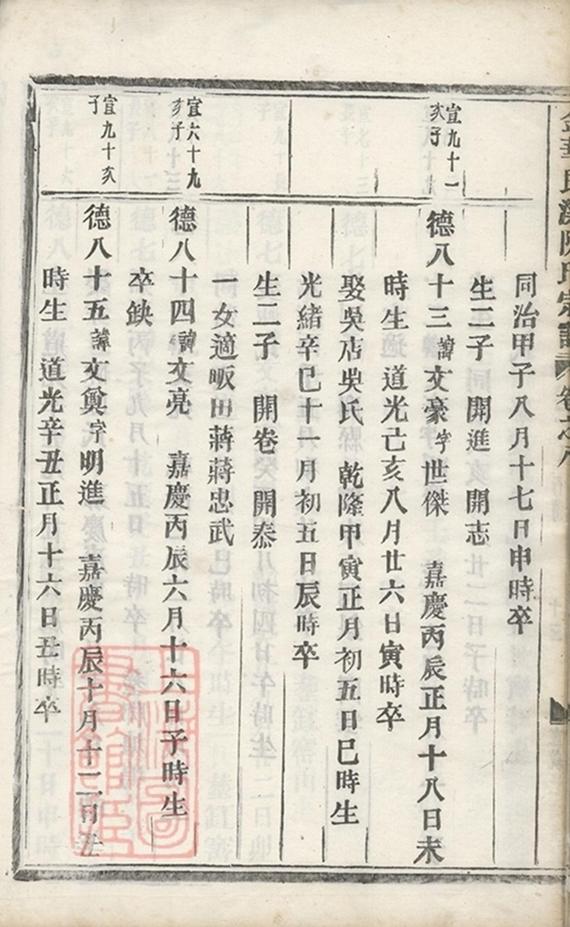 同治甲子八月十七日申時卒
生二子 開進 開志
宜九十一
亥子
德八十三 諱文豪 字世傑 嘉慶丙辰正月十八日未
時生 道光己亥八月廿六日寅時卒
娶吳店吳氏 乾隆甲寅正月初五日巳時生
光緒辛巳十一月初五日辰時卒
生二子 開卷 開泰
一女適畈田蔣蔣忠武
宜六十九
亥子
德八十四 諱文亮 嘉慶丙辰六月十六日子時生
卒缺
宜九十亥
子
德八十五 諱文奠 字明進 嘉慶丙辰十月十二日丑
時生 道光辛丑正月十六日丑時卒